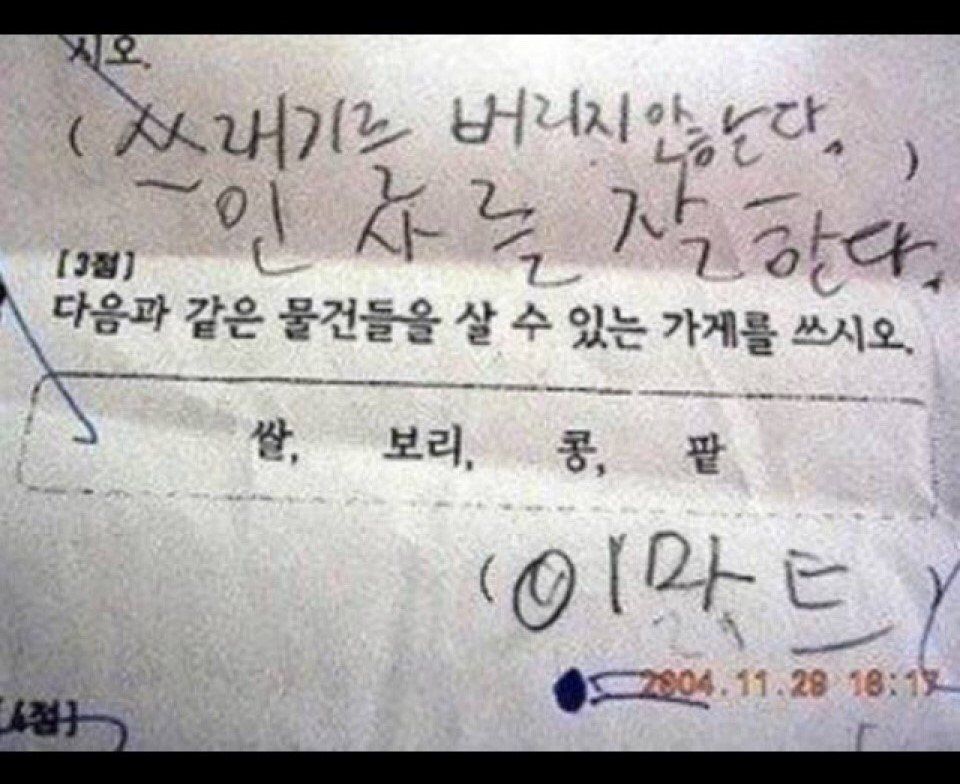 시오.
( 쓰래기르 버리지 안는다. )
인사를 잘 한다.
[3점]
다음과 같은 물건들을 살 수 있는 가게를 쓰시오.
쌀, 보리, 콩, 팥
(이마트)
2004.11.28 18:17
[4점]